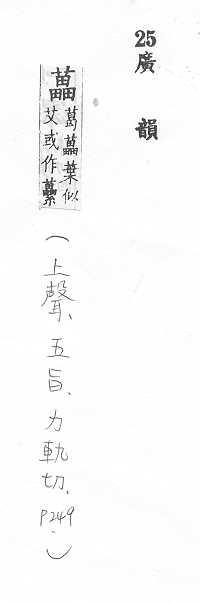 25廣韻
藟葛藟葉似
艾或作虆
(上聲、五旨、力軌切、P249.)